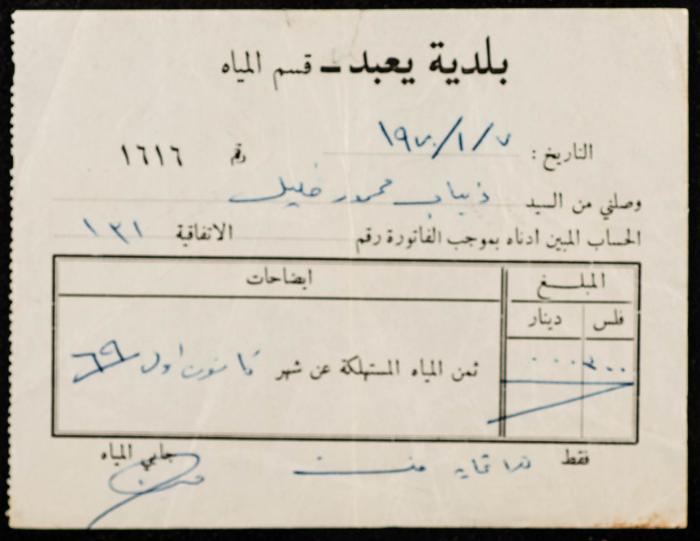 بلدية يعبد ــ قسم المياه
التاريخ: ١٩٧٠/١/٧ رقم ١٦١٦
وصلني من السيد ذياب محمود خليل
الحساب المبين ادناه بموجب الفاتورة رقم الاتفاقية ١٣١
المبلــغ ايضاحات
فلس دينار
٣٠٠ ٠٠٠ ثمن المياه المستهلكة عن شهر كانون اول ٦٩
فقط ثلاثماية فلس
جابي المياه